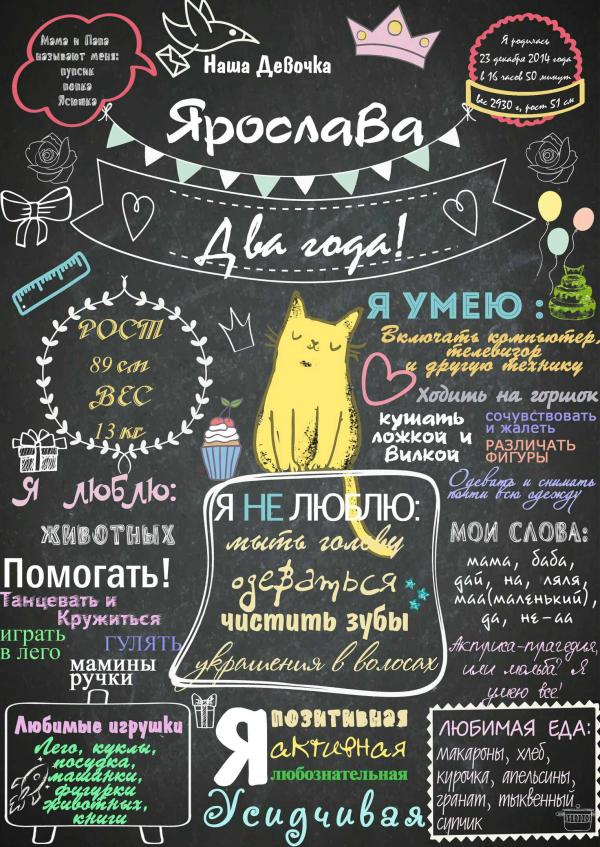 Мама и Папа
называют меня:
пупсик
попка
Ясюшка
Наша Девочка
Ярослава
Я родилась
23 декабря 2014 года
в 16 часов 50 минут
вес 2930 г, рост 51 см
Два года!
РОСТ
89 см
ВЕС
13 кг
Я УМЕЮ :
Включать компьютер,
телевизор
и другую технику
Ходить на горшок
кушать
ложкой и
Вилкой
сочувствовать
и жалеть
РАЗЛИЧАТЬ
ФИГУРЫ
Одевать и снимать
почти всю одежду
Я люблю:
животных
Помогать!
Танцевать и
Кружиться
играть
в лего
ГУЛЯТЬ
мамины
ручки
Я НЕ ЛЮБЛЮ:
мыть голову
одеваться
чистить зубы
украшения в волосах
МОИ СЛОВА:
мама, баба,
дай, на, ляля,
маа(маленький),
да, не-аа
Актриса-трагедия,
или мольба? Я
умею все!
Любимые игрушки
Лего, куклы,
посудка,
машинки,
фигурки
животных,
книги
Я
позитивная
активная
любознательная
Усидчивая
ЛЮБИМАЯ ЕДА:
макароны, хлеб,
курочка, апельсины,
гранат, тыквенный
супчик